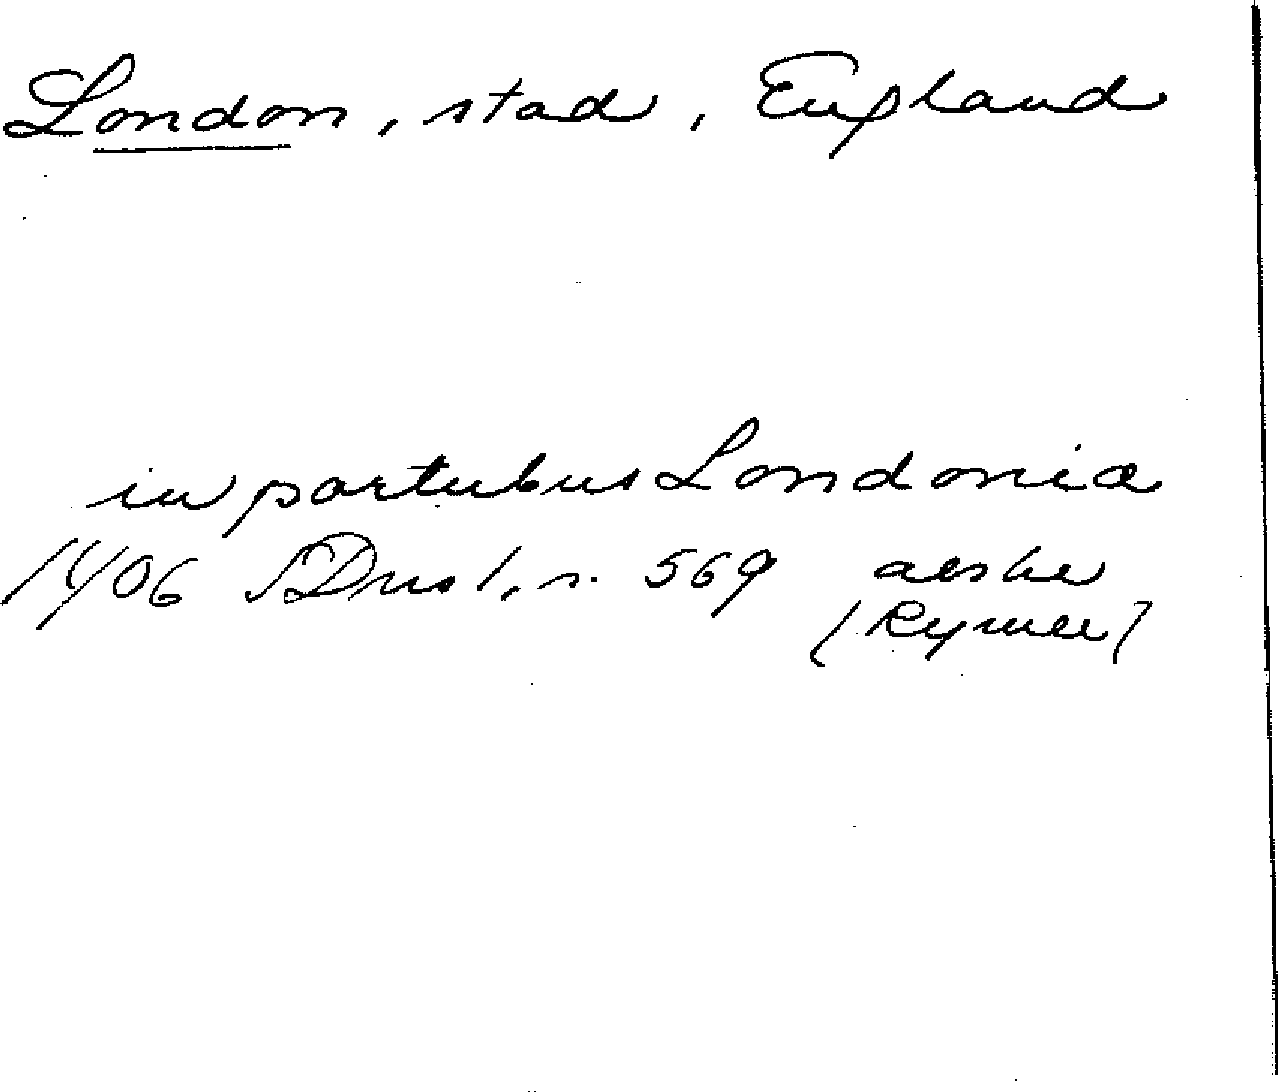 London, stad, England
in portubus Londonia
1406 SDns 1, s. 569 avskr
(Rymer)